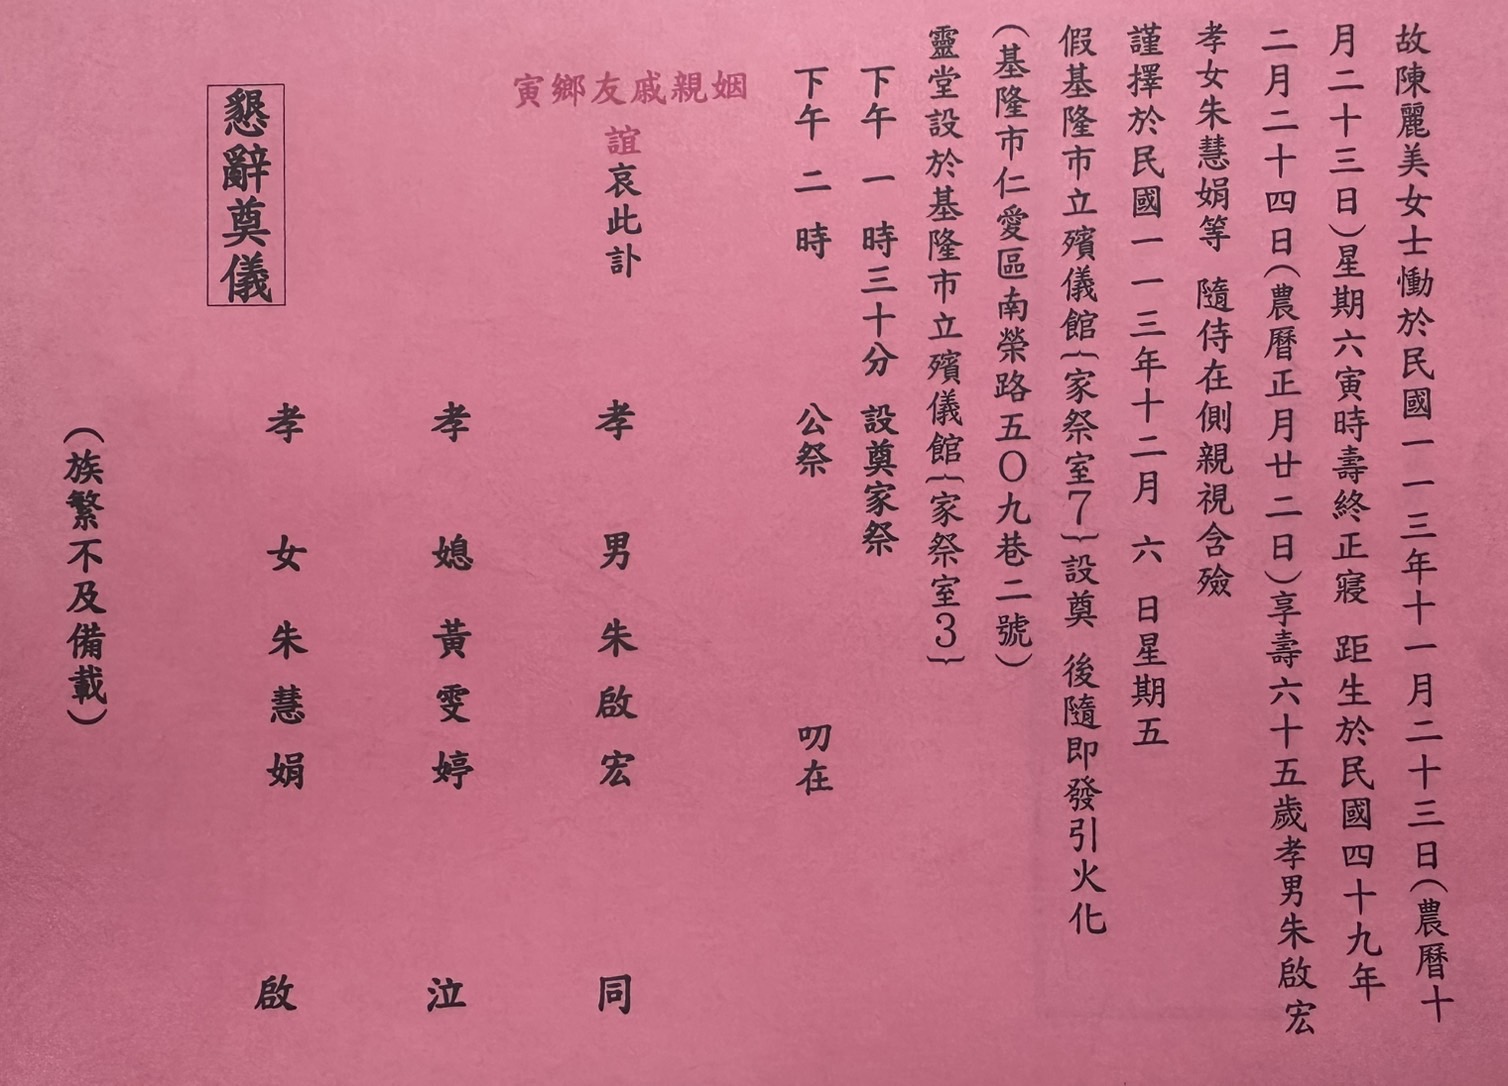 故陳麗美女士慟於民國一一三年十一月二十三日(農曆十
月二十三日)星期六寅時壽終正寢 距生於民國四十九年
二月二十四日(農曆正月廿二日)享壽六十五歲孝男朱啟宏
孝女朱慧娟等 隨侍在側親視含殮
謹擇於民國一一三年十二月 六 日星期五
假基隆市立殯儀館{家祭室7}設奠 後隨即發引火化
(基隆市仁愛區南榮路五〇九巷二號)
靈堂設於基隆市立殯儀館{家祭室3}
下午 一 時三十分 設奠家祭
下午 二 時 公祭 叨在
姻親戚友鄉寅
誼哀此訃
孝 男 朱啟宏 同
孝 媳 黃雯婷 泣
孝 女 朱慧娟 啟
懇辭奠儀
(族繁不及備載)